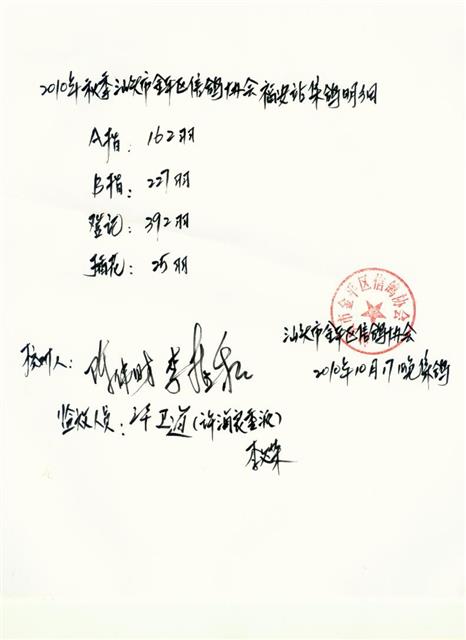 2010年秋季汕头市金平区信鸽协会福安站集鸽明细
A指：162羽
B指：227羽
登记：392羽
插花：25羽
市金平区信鸽协会
汕头市金平区信鸽协会
2010年10月17晚集鸽
人：李
监放人员：卫道(许海
李